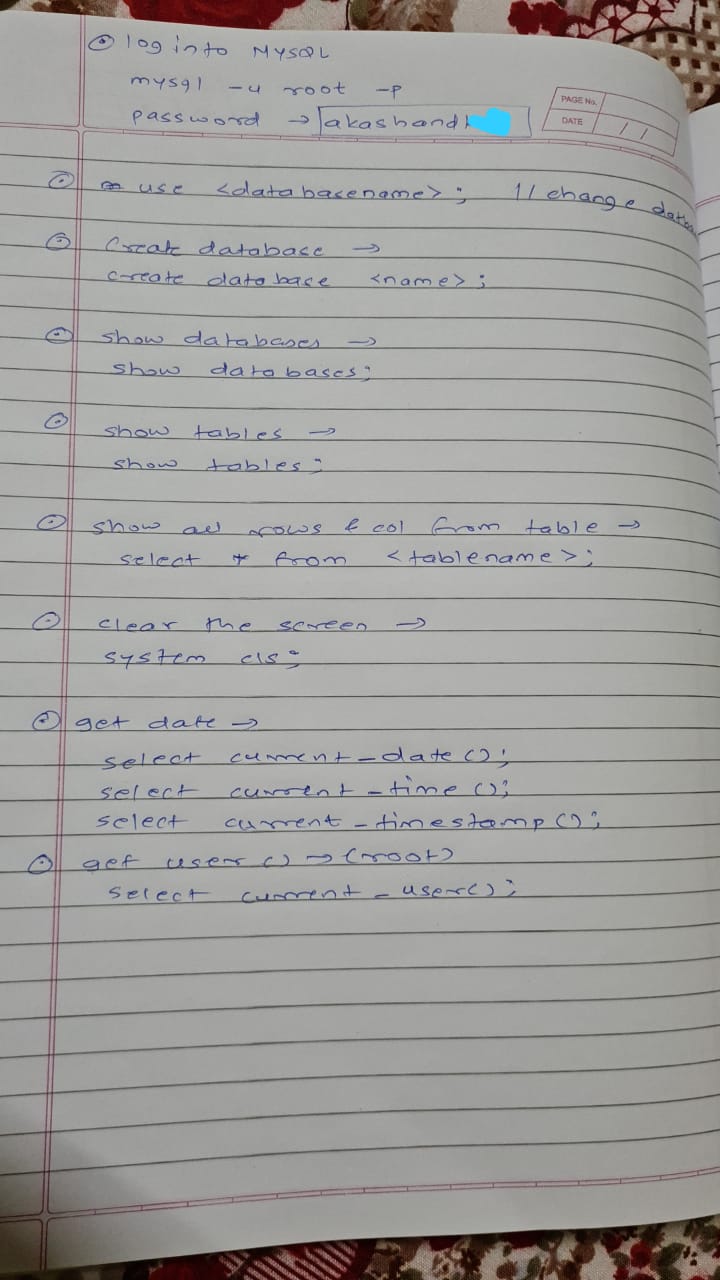 log into MYSQL
mysql -u root -p
password → akashand
PAGE No.
DATE / /
use <databasename>; // change
Create database →
create database <name>;
show databases →
show databases;
show tables →
show tables;
show all rows & col from table →
select * from <tablename>;
clear the screen →
system cls;
get date →
select current_date();
select current_time();
select current_timestamp();
get user() → (root)
select current_user();